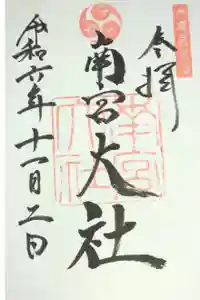 奉拝
南宮大社
令和六年十一月二日
南宮
大社